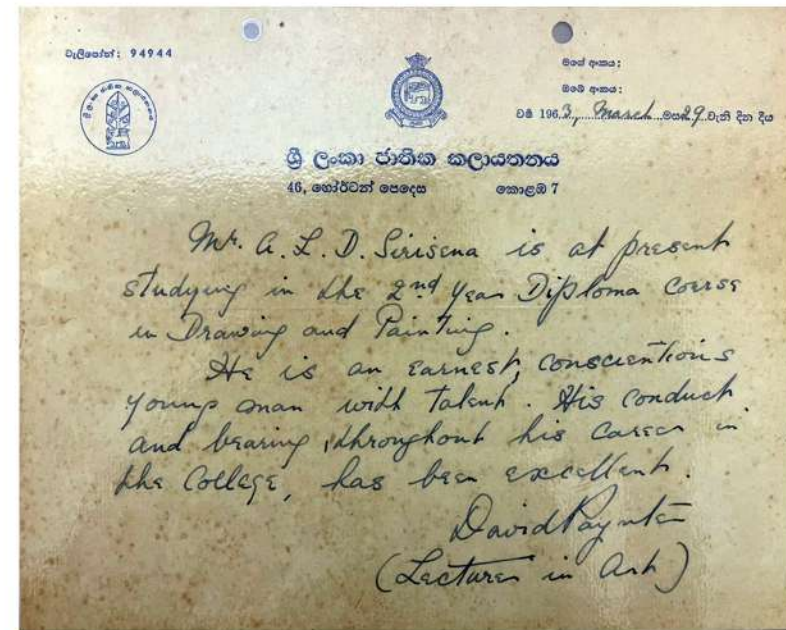 ටැලිපෝන්: 94944
මගේ අංකය:
ඔබේ අංකය:
වර්ෂ 1963, March මස 29 වැනි දින දීය
ශ්‍රී ලංකා ජාතික කලායතනය
46, හෝර්ටන් පෙදෙස කොළඹ 7
Mr. A. L. D. Sirisena is at present
studying in the 2nd Year Diploma Coerse
in Drawing and Painting.
He is an earnest, conscientious
young man with talent. His conduct
and bearing, throughout his career in
the College, has been excellent.
David Paynter
(Lecturer in Art)